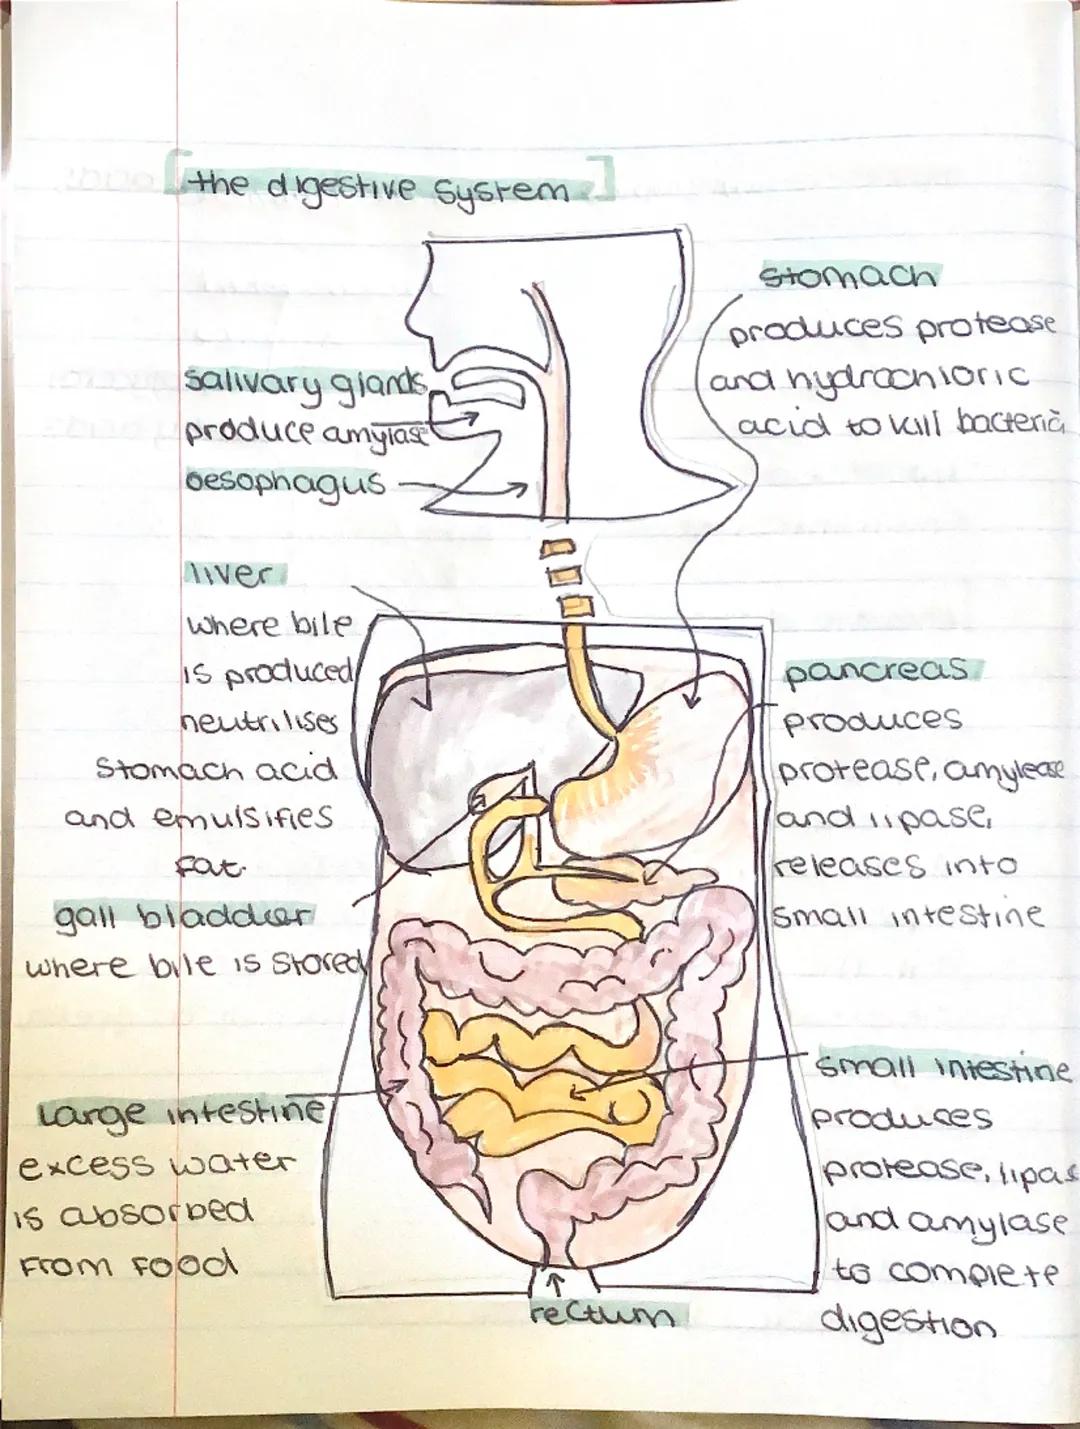 [the digestive system]
stomach
produces protease
and hydrochloric
acid to kill bacteria
salivary glands
produce amylase
oesophagus
liver
where bile
is produced
neutrilises
stomach acid
and emulsifies
fat.
gall bladder
where bile is stored
pancreas
produces
protease, amylease
and lipase,
releases into
small intestine
large intestine
excess water
is absorbed
from food
small intestine
produces
protease, lipas
and amylase
to complete
digestion
rectum